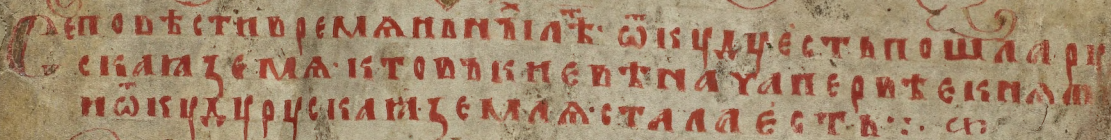 Се повѣсти времѧньныⷯ҇ лѣⷮ҇· ѿкуду есть пошла ру
скаꙗ земѧ· кто въ киевѣ нача первѣе кнѧж
и ѿкуду рускаꙗ землѧ стала есть·:·